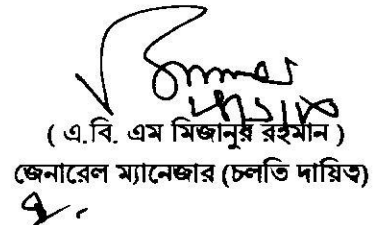 ( এ.বি. এম মিজানুর রহমান )
জেনারেল ম্যানেজার (চলতি দায়িত্ব)